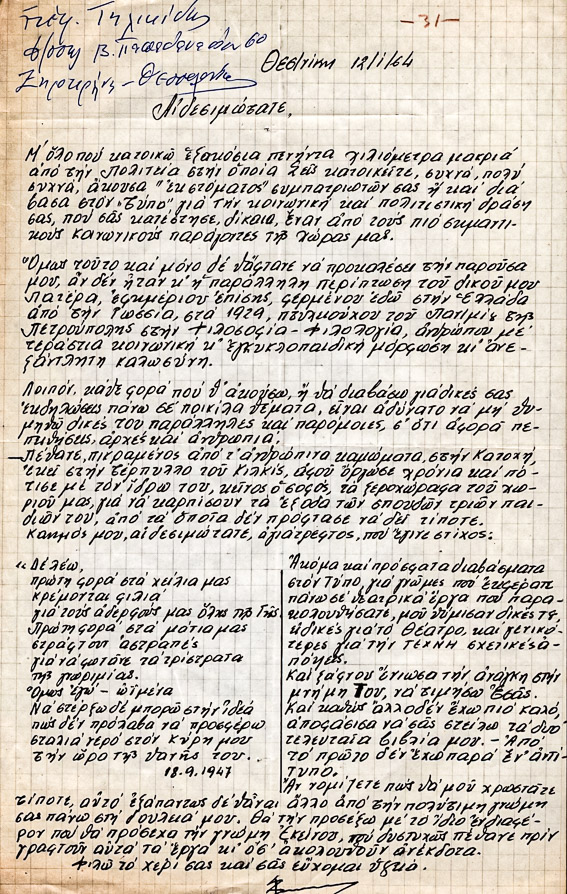 Στέφ. Τηλικίδης
Φ/δος Β. Παπαθανασίου 60
Ζηρτεργήν - Θεσσαλονίκη
-31-
Θεσ/νίκη 12/1/64
Αἰδεσιμώτατε,
Μ' ὅλο πού κατοικῶ ἑξακόσια πενήντα χιλιόμετρα μακριά
ἀπό τήν πολιτεία στήν ὁποία Σεῖς κατοικεῖτε, συχνά, πολύ
συχνά, ἄκουσα "ἐκ στόματος" συμπατριωτῶν σας ἤ καί διά
βασα στόν "τύπο" γιά τήν κοινωνική καί πολιτιστική δράση
σας, πού σᾶς κατέστησε, δίκαια, ἕναν ἀπό τούς πιό σημαντι-
κούς κοινωνικούς παράγοντες τῆς χώρας μας.
Ὅμως τοῦτο καί μόνο δέ θἄφτανε νά προκαλέσει τήν παροῦσα
μου, ἄν δέν ἦταν κ' ἡ παράλληλη περίπτωση τοῦ δικοῦ μου
πατέρα, ἐφημέριου ἐπίσης, φερμένου ἐδῶ στήν Ἑλλάδα
ἀπό τήν Ρωσσία, στά 1929, πτυχιούχου τοῦ Πανιμίου τῆς
Πετρούπολης στήν Φιλοσοφία - Φιλολογία, ἀνθρώπου μέ
τεράστια κοινωνική κ' ἐγκυκλοπαιδική μόρφωση κι' ἀνε-
ξάντλητη καλωσύνη.
Λοιπόν, κάθε φορά πού θ' ἀκούσω, ἤ νά διαβάσω γιά δικές σας
ἐκδηλώσεις πάνω σέ ποικίλα θέματα, εἶναι ἀδύνατο νά μή θυ-
μηθῶ δικές του παράλληλες καί παρόμοιες, σ' ὅτι ἀφορᾶ πε-
ποιθήσεις, ἀρχές καί ἀνθρωπιά.
-Πέθανε, πικραμένος ἀπό τ' ἀνθρώπινα καμώματα, στήν Κατοχή,
ἐκεῖ στήν τέρπυλλο τοῦ Κιλκίς, ἀφοῦ ὄργωσε χρόνια καί πό-
τισε μέ τόν ἵδρω του, κεῖνος ὁ σοφός, τά ξεροχώραφα τοῦ χω-
ριοῦ μας, γιά νά καρπίσουν τά ἔξοδα τῶν σπουδῶν τριῶν παι-
διῶν του, ἀπό τά ὁποῖα δέν πρόφτασε νά δεῖ τίποτε.
Καημός μου, αἰδεσιμώτατε, ἀγιάτρεφτος, πού ἔγινε στίχος:
"Δέ λέω,
πρώτη φορά στά χείλια μας
κρέμονται φιλιά
γιά τούς ἀδερφούς μας ὅλης τῆς Γῆς.
Πρώτη φορά στά μάτια μας
στράφτουν ἀστραπές
γιά νά φωτᾶνε τά τρίστρατα
τῆς γνωριμίας.
Ὅμως ἐγώ - ὠϊμένα
Νά στέρξω δέ μπορῶ στήν ἰδέα
πώς δέν πρόλαβα νά προσφέρω
σταλιά νερό στόν κύρη μου
τήν ὥρα τῆς θανῆς του..
18.9.1947
Ἀκόμα καί πρόσφατα διαβάσματα
στόν Τύπο, γιά γνῶμες πού ἐκφέρατε
πάνω σέ θεατρικά ἔργα πού παρα-
κολουθήσατε, μοῦ θύμισαν δικές τ8,
εἰδικές γιά τό Θέατρο, καί γενικό-
τερες γιά τήν ΤΕΧΝΗ σχετικές ἀ-
πόψεις.
Καί ξάφνου ἔνιωσα τήν ἀνάγκη στήν
μνήμη Του, νά τιμήσω Ἐσᾶς.
Καί καθώς ἄλλο δέν ἔχω πιό καλό,
ἀποφάσισα νά σᾶς στείλω τά δυό
τελευταῖα βιβλία μου. - Ἀπό
τό πρῶτο δέν ἔχω παρά ἕν' ἀντί-
τυπο.
Ἄν νομίζετε πώς νά μοῦ χρωστᾶτε
τίποτε, αὐτό ἐξάπαντως δέ θἆναι ἄλλο ἀπό τήν πολύτιμη γνώμη
σας πάνω στή δουλειά μου. Θά τήν προσέξω μέ τό ἴδιο ἐνδιαφέ-
ρον πού θά πρόσεχα τήν γνώμη Ἐκείνου, πού δυστυχῶς πέθανε πρίν
γραφτοῦν αὐτά τά ἔργα κι' ὅσ' ἀκολουθοῦν ἀνέκδοτα.
Φιλῶ τό χέρι σας καί σᾶς εὔχομαι ὑγεία.